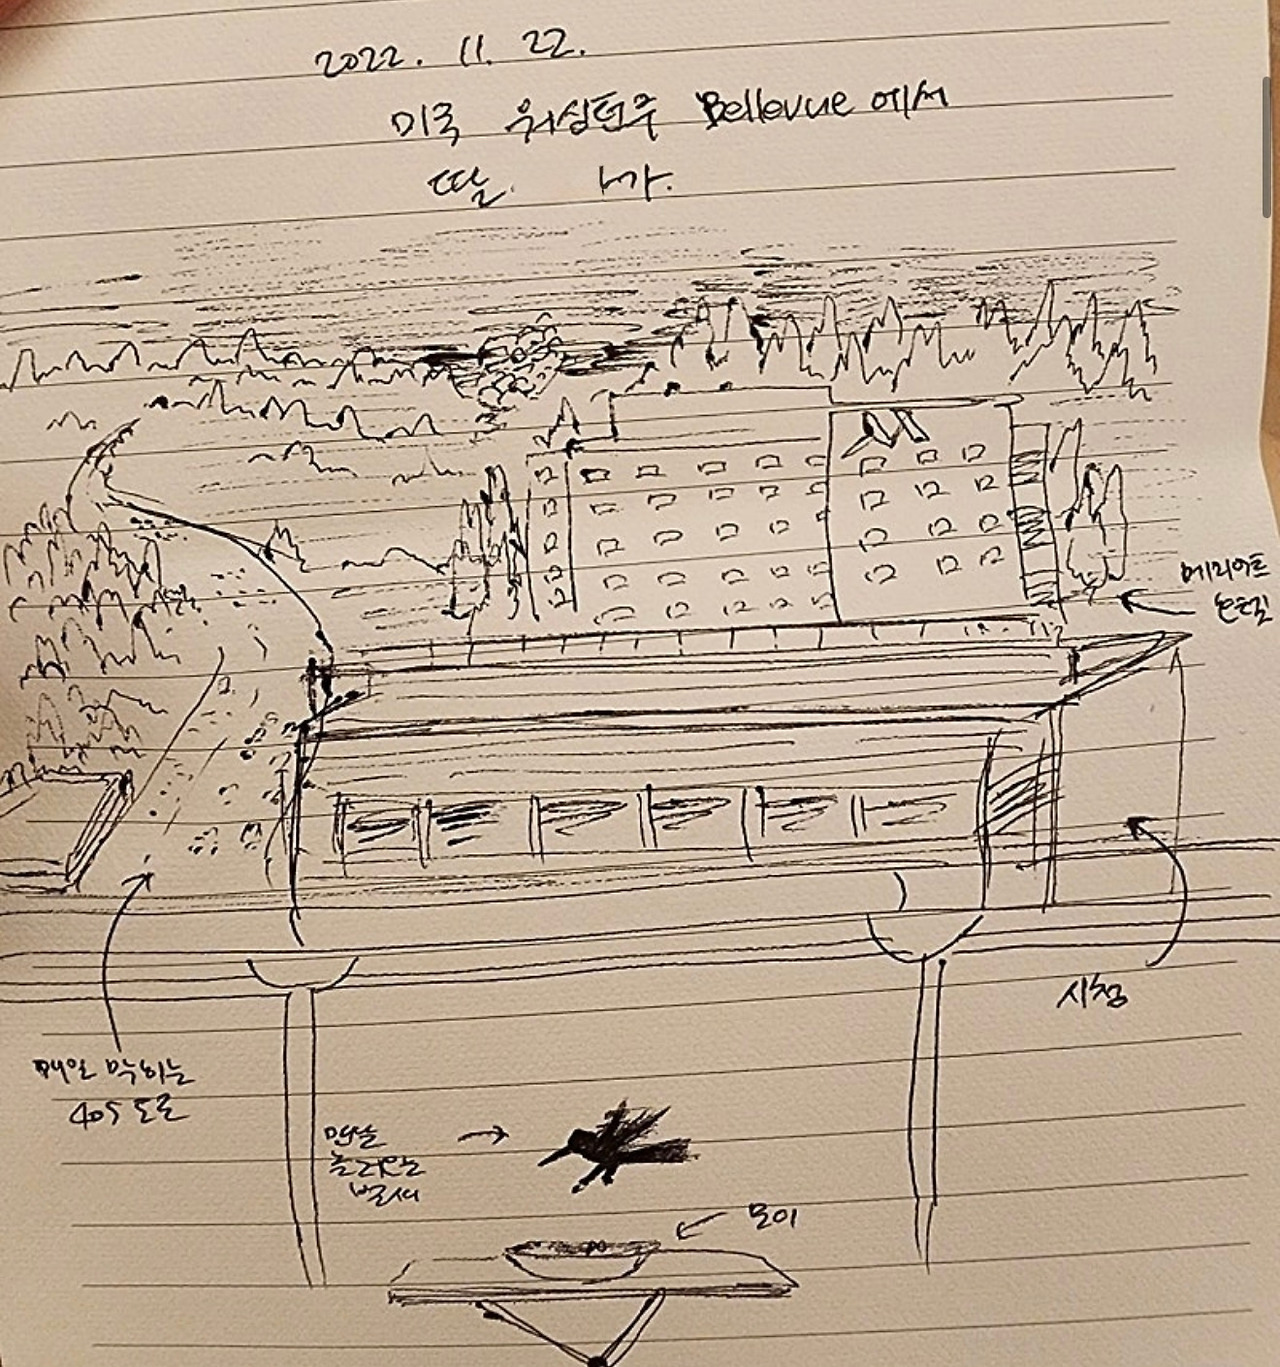 2022. 11. 22.
미국 워싱턴주 Bellevue 에서
딸. 나가.
메리어트
호텔
시청
매일 막히는
405 도로
맨날
놀러오는
벌새
모이